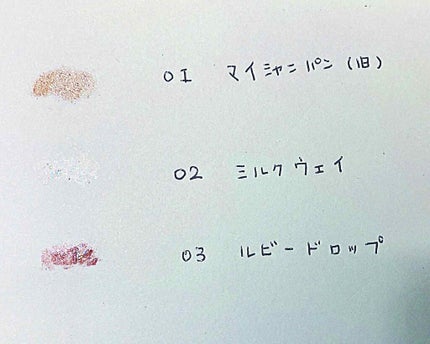 01 マイシャンパン(旧)
02 ミルクウェイ
03 ルビードロップ